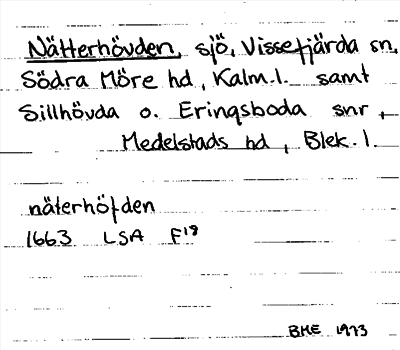 Nätterhövden, sjö, Vissefjärda sn,
Södra Möre hd, Kalm.l. samt
Sillhövda o. Eringsboda snr,
Medelstads hd, Blek.l.
näterhöfden
1663 LSA F18
BME 1973